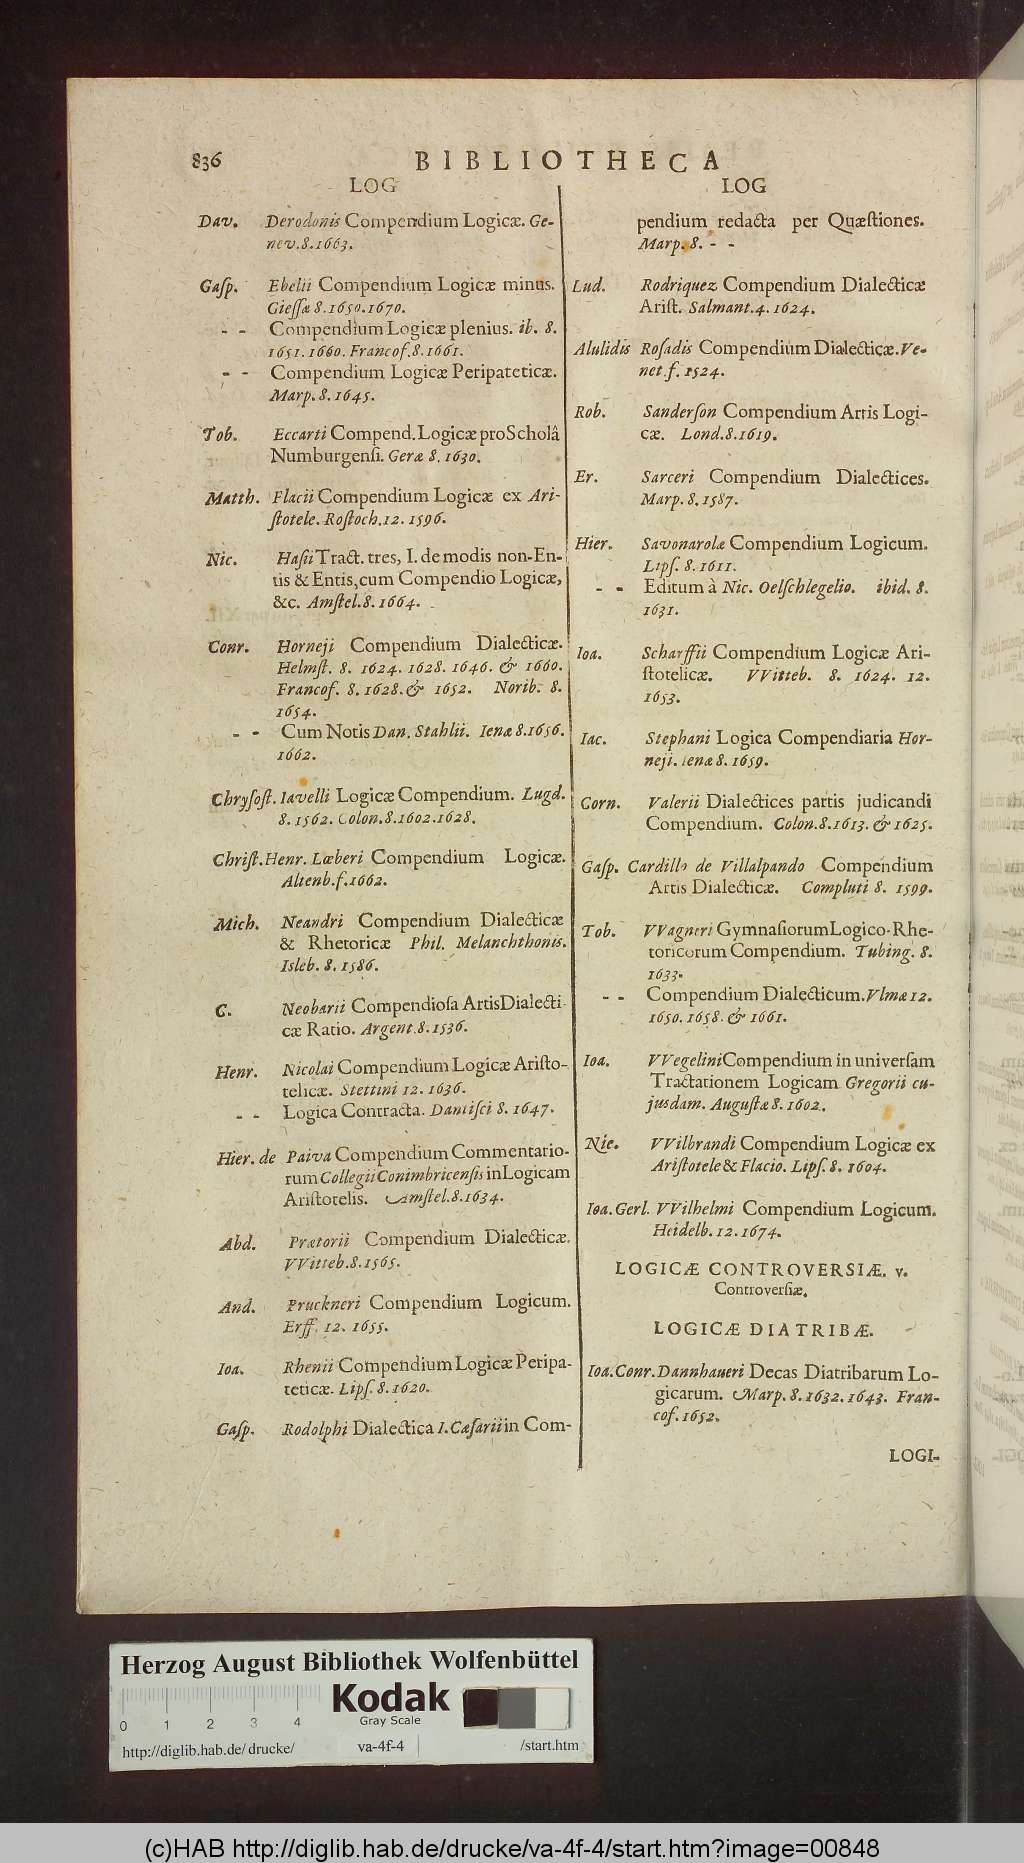 836 BIBLIOTHECA
LOG
Dav. Derodonis Compendium Logicæ. Ge-
nev. 8. 1663.
Gaſp. Ebelii Compendium Logicæ minus.
Gieſſæ 8. 1650. 1670.
- - Compendium Logicæ plenius. ib. 8.
1651. 1660. Francof. 8. 1661.
- - Compendium Logicæ Peripateticæ.
Marp. 8. 1645.
Tob. Eccarti Compend. Logicæ pro Scholâ
Numburgenſi. Geræ 8. 1630.
Matth. Flacii Compendium Logicæ ex Ari-
ſtotele. Roſtoch. 12. 1596.
Nic. Haſii Tract. tres, I. de modis non-En-
tis & Entis, cum Compendio Logicæ,
&c. Amſtel. 8. 1664.
Conr. Horneji Compendium Dialecticæ.
Helmſt. 8. 1624. 1628. 1646. & 1660.
Francof. 8. 1628. & 1652. Norib. 8.
1654.
- - Cum Notis Dan. Stahlii. Ienæ 8. 1656.
1662.
Chryſoſt. Iavelli Logicæ Compendium. Lugd.
8. 1562. Colon. 8. 1602. 1628.
Chriſt. Henr. Lœberi Compendium Logicæ.
Altenb. f. 1662.
Mich. Neandri Compendium Dialecticæ
& Rhetoricæ Phil. Melanchthonis.
Isleb. 8. 1586.
C. Neobarii Compendioſa Artis Dialecti-
cæ Ratio. Argent. 8. 1536.
Henr. Nicolai Compendium Logicæ Ariſto-
telicæ. Stettini 12. 1636.
- - Logica Contracta. Dantiſci 8. 1647.
Hier. de Paiva Compendium Commentario-
rum Collegii Conimbricenſis in Logicam
Ariſtotelis. Amſtel. 8. 1634.
Abd. Prætorii Compendium Dialecticæ.
VVitteb. 8. 1565.
And. Pruckneri Compendium Logicum.
Erff. 12. 1655.
Ioa. Rhenii Compendium Logicæ Peripa-
teticæ. Lipſ. 8. 1620.
Gaſp. Rodolphi Dialectica I. Cæſarii in Com-
LOG
pendium redacta per Quæſtiones.
Marp. 8. - -
Lud. Rodriquez Compendium Dialecticæ
Ariſt. Salmant. 4. 1624.
Alulidis Roſadis Compendium Dialecticæ. Ve-
net. f. 1524.
Rob. Sanderſon Compendium Artis Logi-
cæ. Lond. 8. 1619.
Er. Sarceri Compendium Dialectices.
Marp. 8. 1587.
Hier. Savonarolæ Compendium Logicum.
Lipſ. 8. 1611.
- - Editum à Nic. Oelſchlegelio. ibid. 8.
1631.
Ioa. Scharffii Compendium Logicæ Ari-
ſtotelicæ. VVitteb. 8. 1624. 12.
1653.
Iac. Stephani Logica Compendiaria Hor-
neji. Ienæ 8. 1659.
Corn. Valerii Dialectices partis judicandi
Compendium. Colon. 8. 1613. & 1625.
Gaſp. Cardillo de Villalpando Compendium
Artis Dialecticæ. Compluti 8. 1599.
Tob. VVagneri Gymnaſiorum Logico-Rhe-
toricorum Compendium. Tubing. 8.
1633.
- - Compendium Dialecticum. Vlmæ 12.
1650. 1658. & 1661.
Ioa. VVegelini Compendium in univerſam
Tractationem Logicam Gregorii cu-
jusdam. Auguſtæ 8. 1602.
Nic. VVilbrandi Compendium Logicæ ex
Ariſtotele & Flacio. Lipſ. 8. 1604.
Ioa. Gerl. VVilhelmi Compendium Logicum.
Heidelb. 12. 1674.
LOGICÆ CONTROVERSIÆ. v.
Controverſiæ.
LOGICÆ DIATRIBÆ.
Ioa. Conr. Dannhaueri Decas Diatribarum Lo-
gicarum. Marp. 8. 1632. 1643. Fran-
cof. 1652.
LOGI-
Herzog August Bibliothek Wolfenbüttel
Kodak
Gray Scale
0 1 2 3 4
http://diglib.hab.de/drucke/ va-4f-4 /start.htm
(c)HAB http://diglib.hab.de/drucke/va-4f-4/start.htm?image=00848